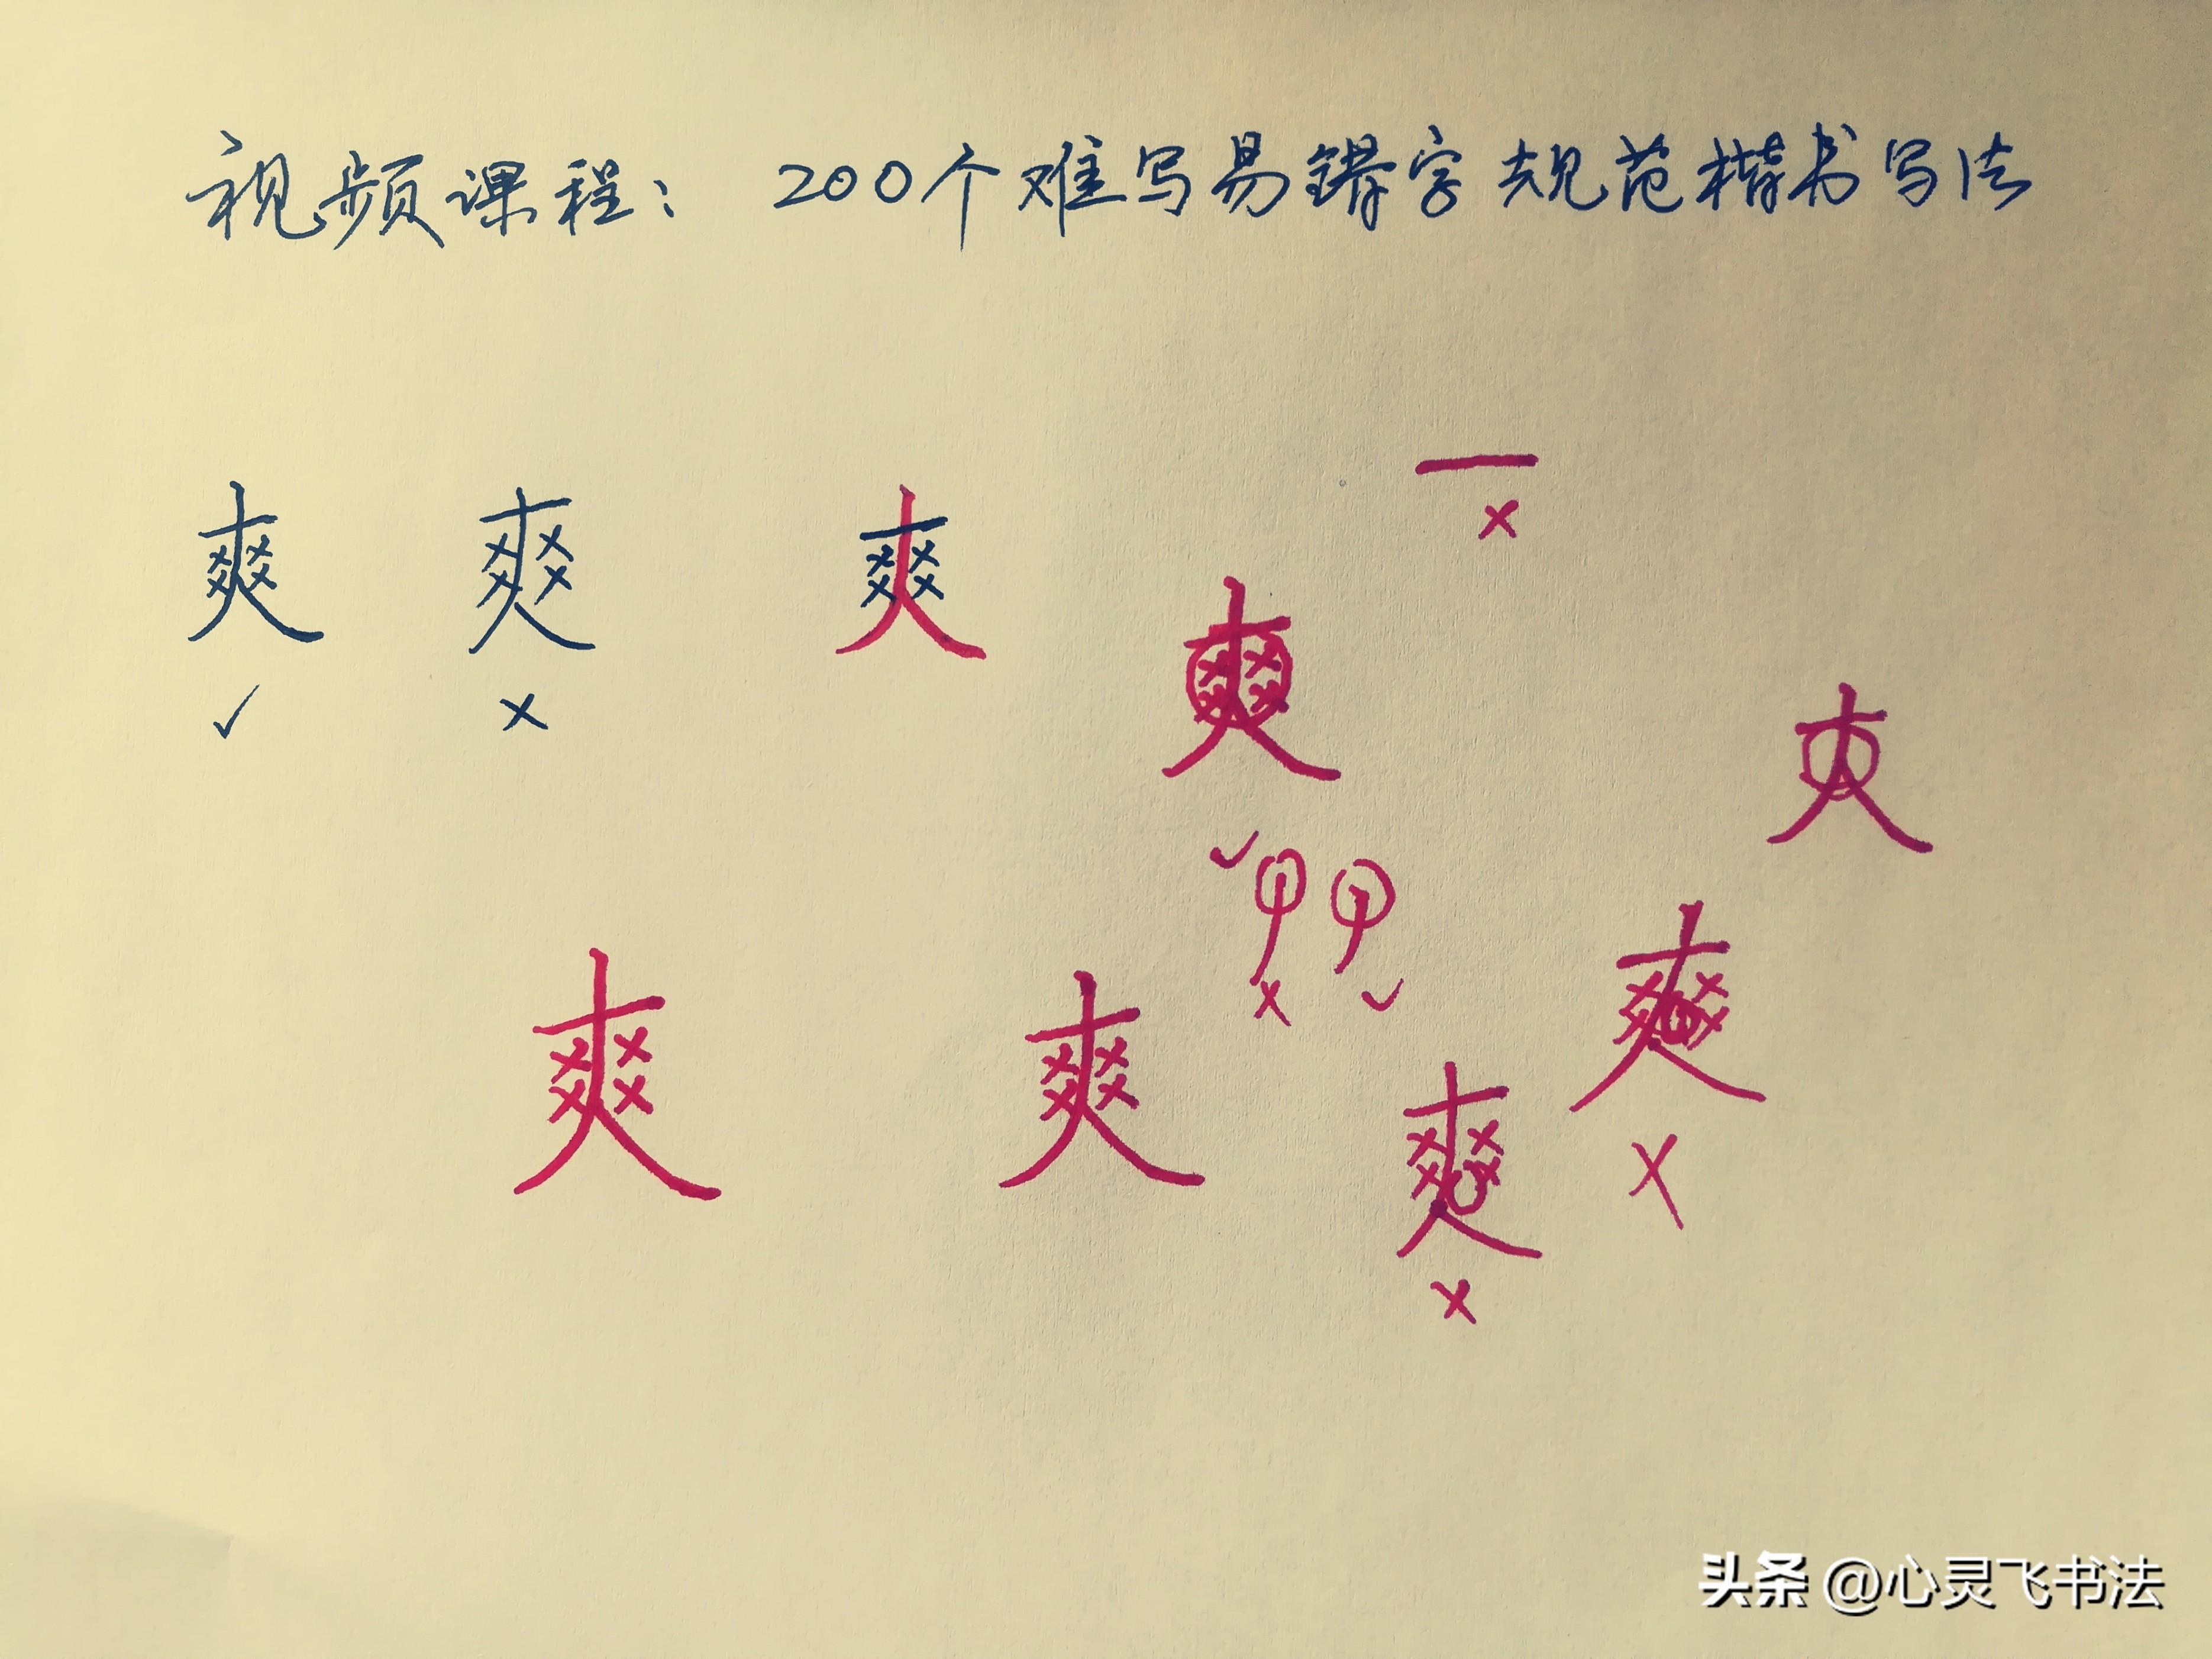 视频课程： 200个难写易错字规范楷书写法
爽 爽 爽 爽
✓ ×
爽 爽 爽 爽
头条 @心灵飞书法